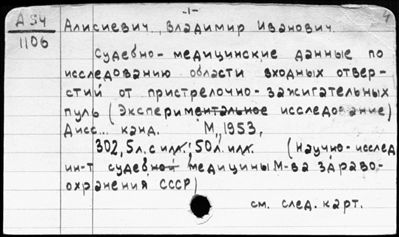 -1-
4
А 34
1106
Алисиевич, Владимир Иванович.
Судебно-медицинские данные по
исследованию области входных отвер-
стий от пристрелочно-зажигательных
пуль (Экспериментальное исследование)
Дисс... канд. М., 1953,
302,5л.с илл.; 50л. илл. (Научно-исслед
ин-т судебной медицины М-ва здраво-
охранения СССР)
см. след. карт.